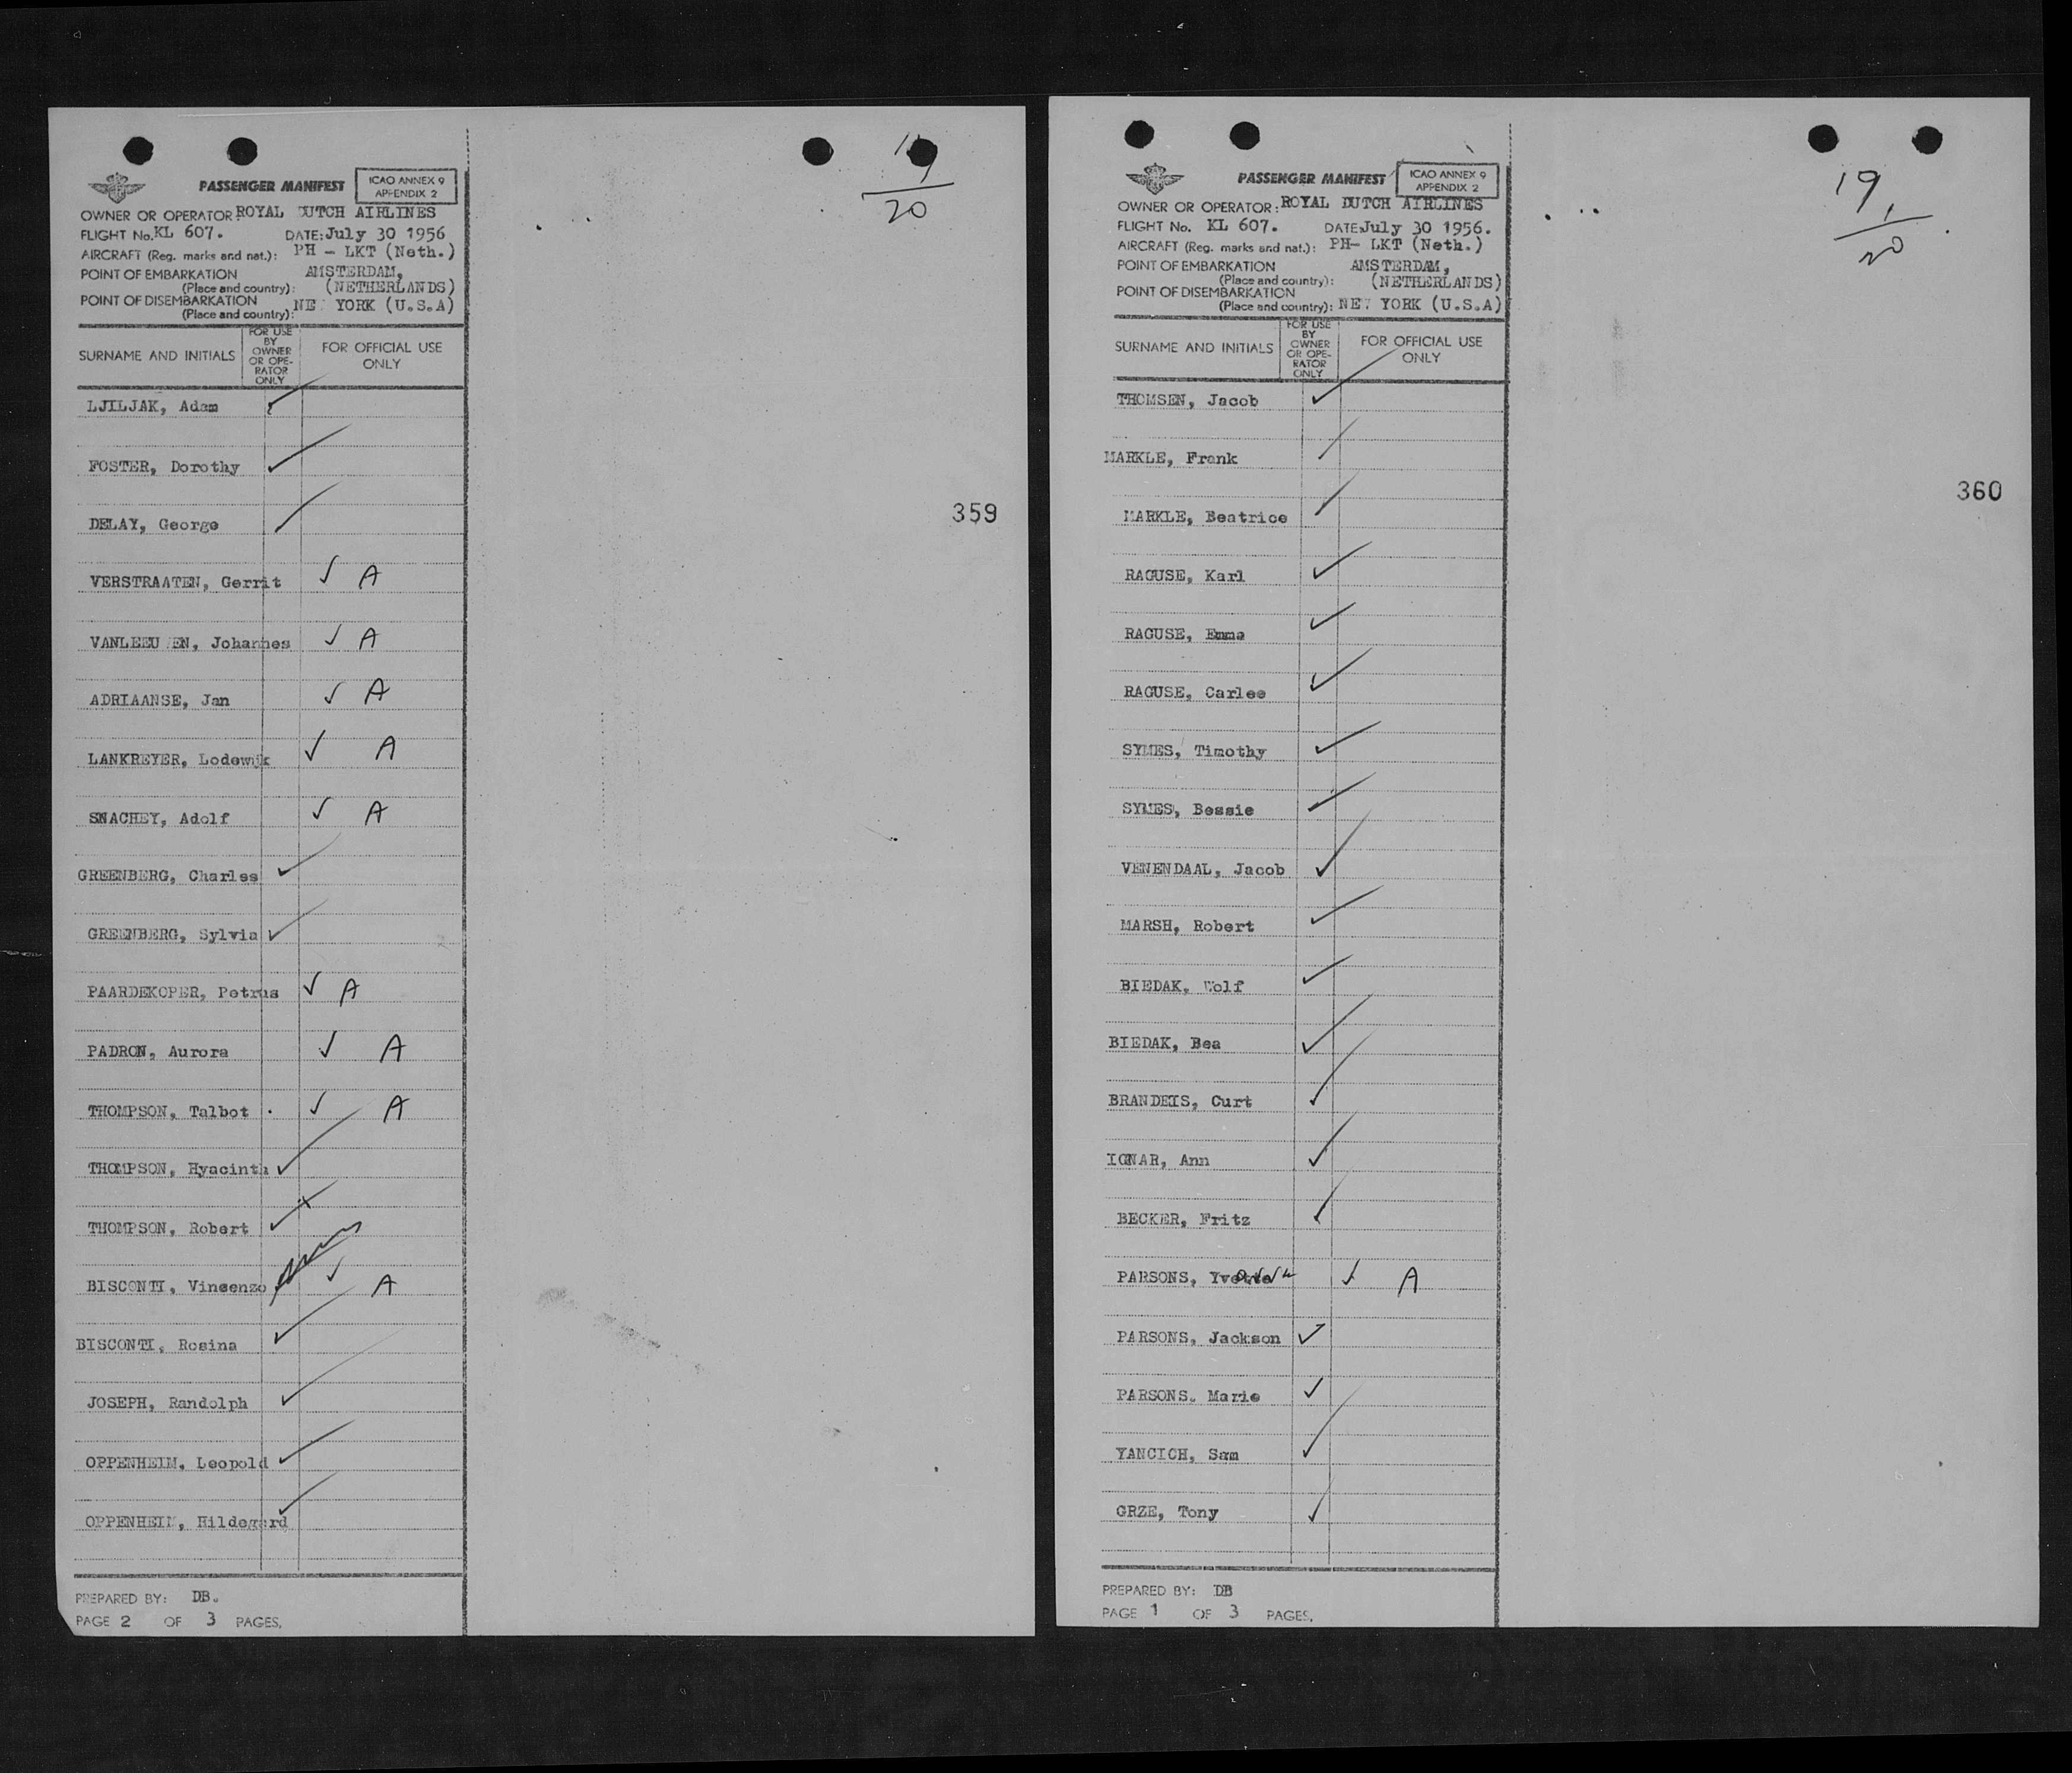 PASSENGER MANIFEST
ICAO ANNEX 9
APPENDIX 2
OWNER OR OPERATOR ROYAL DUTCH AIRLINES
FLIGHT No. KL 607. DATE: July 30 1956
AIRCRAFT (Reg. marks and nat.): PH - LKT (Neth.)
POINT OF EMBARKATION AMSTERDAM,
(Place and country): (NETHERLANDS)
POINT OF DISEMBARKATION
(Place and country): NEW YORK (U.S.A)
SURNAME AND INITIALS
FOR USE
BY
OWNER
OR OPE-
RATOR
ONLY
FOR OFFICIAL USE
ONLY
LJILJAK, Adam
FOSTER, Dorothy
DELAY, George
VERSTRAATEN, Gerrit ✓ A
VANLEEU EN, Johannes ✓ A
ADRIAANSE, Jan ✓ A
LANKREYER, Lodewijk ✓ A
SNACHEY, Adolf ✓ A
GREENBERG, Charles
GREENBERG, Sylvia
PAARDEKOPER, Petrus ✓ A
PADRON, Aurora ✓ A
THOMPSON, Talbot . ✓ A
THOMPSON, Hyacinth
THOMPSON, Robert
BISCONTI, Vincenzo ✓ A
BISCONTI, Rosina
JOSEPH, Randolph
OPPENHEIM, Leopold
OPPENHEIM, Hildegard
PREPARED BY: DB.
PAGE 2 OF 3 PAGES.
19
20
359
PASSENGER MANIFEST
ICAO ANNEX 9
APPENDIX 2
OWNER OR OPERATOR: ROYAL DUTCH AIRLINES
FLIGHT No. KL 607. DATE: July 30 1956.
AIRCRAFT (Reg. marks and nat.): PH- LKT (Neth.)
POINT OF EMBARKATION AMSTERDAM,
(Place and country): (NETHERLANDS)
POINT OF DISEMBARKATION
(Place and country): NEW YORK (U.S.A)
SURNAME AND INITIALS
FOR USE
BY
OWNER
OR OPE-
RATOR
ONLY
FOR OFFICIAL USE
ONLY
THOMSEN, Jacob
MARKLE, Frank
MARKLE, Beatrice
RAGUSE, Karl
RAGUSE, Emma
RAGUSE, Carlee
SYMES, Timothy
SYMES, Bessie
VENENDAAL, Jacob
MARSH, Robert
BIEDAK, Wolf
BIEDAK, Bea
BRANDEIS, Curt
IGNAR, Ann
BECKER, Fritz
PARSONS, Yvette ✓ A
PARSONS, Jackson
PARSONS, Marie
YANCICH, Sam
GRZE, Tony
PREPARED BY: DB
PAGE 1 OF 3 PAGES.
19
20
360